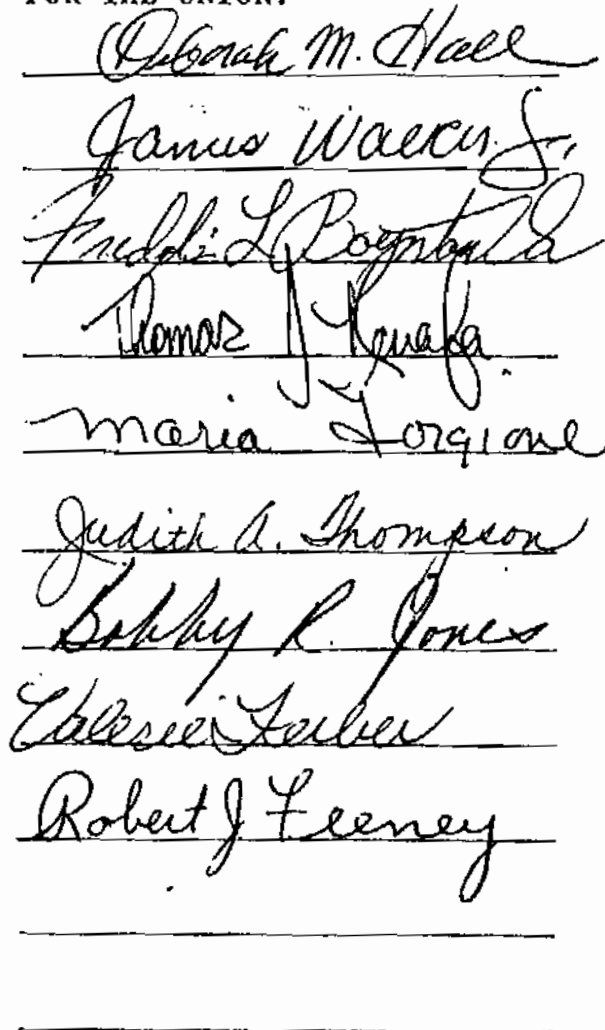 FOR THE UNION:
Deborah M. Hall
James Walker Jr.
Freddie L. Boynton
Thomas J
Maria Forgione
Judith A. Thompson
Bobby R. Jones
Valerie Ferber
Robert J Feeney